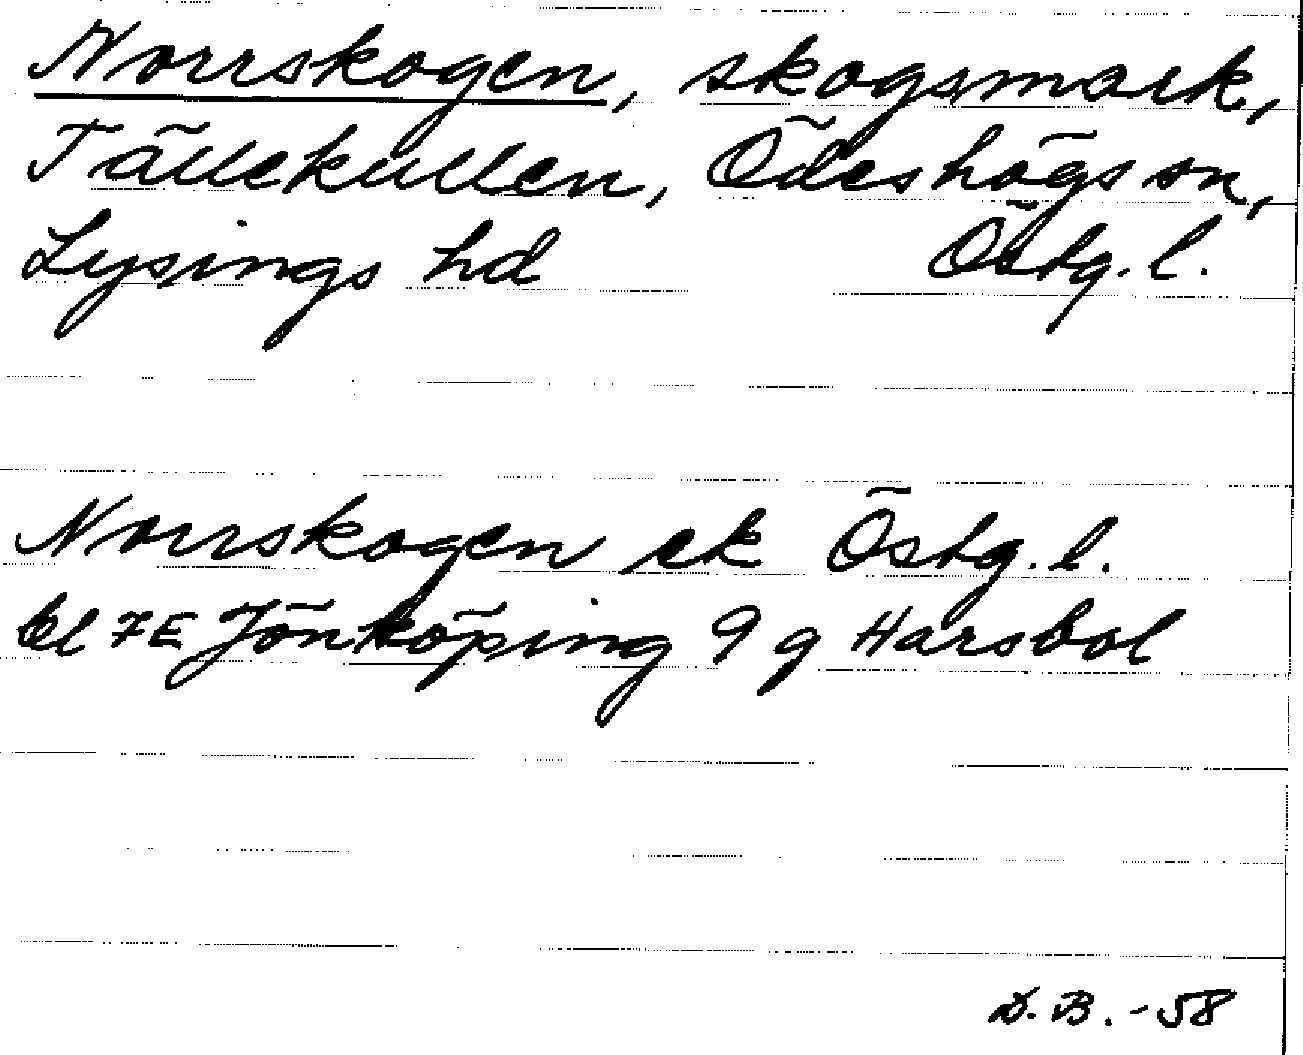 Norrskogen, skogsmark,
Tällekullen, Ödeshögs sn,
Lysings hd Östg. l.
Norrskogen ek Östg. l.
bl 7E Jönköping 9 g Harsbol
D.B. -58